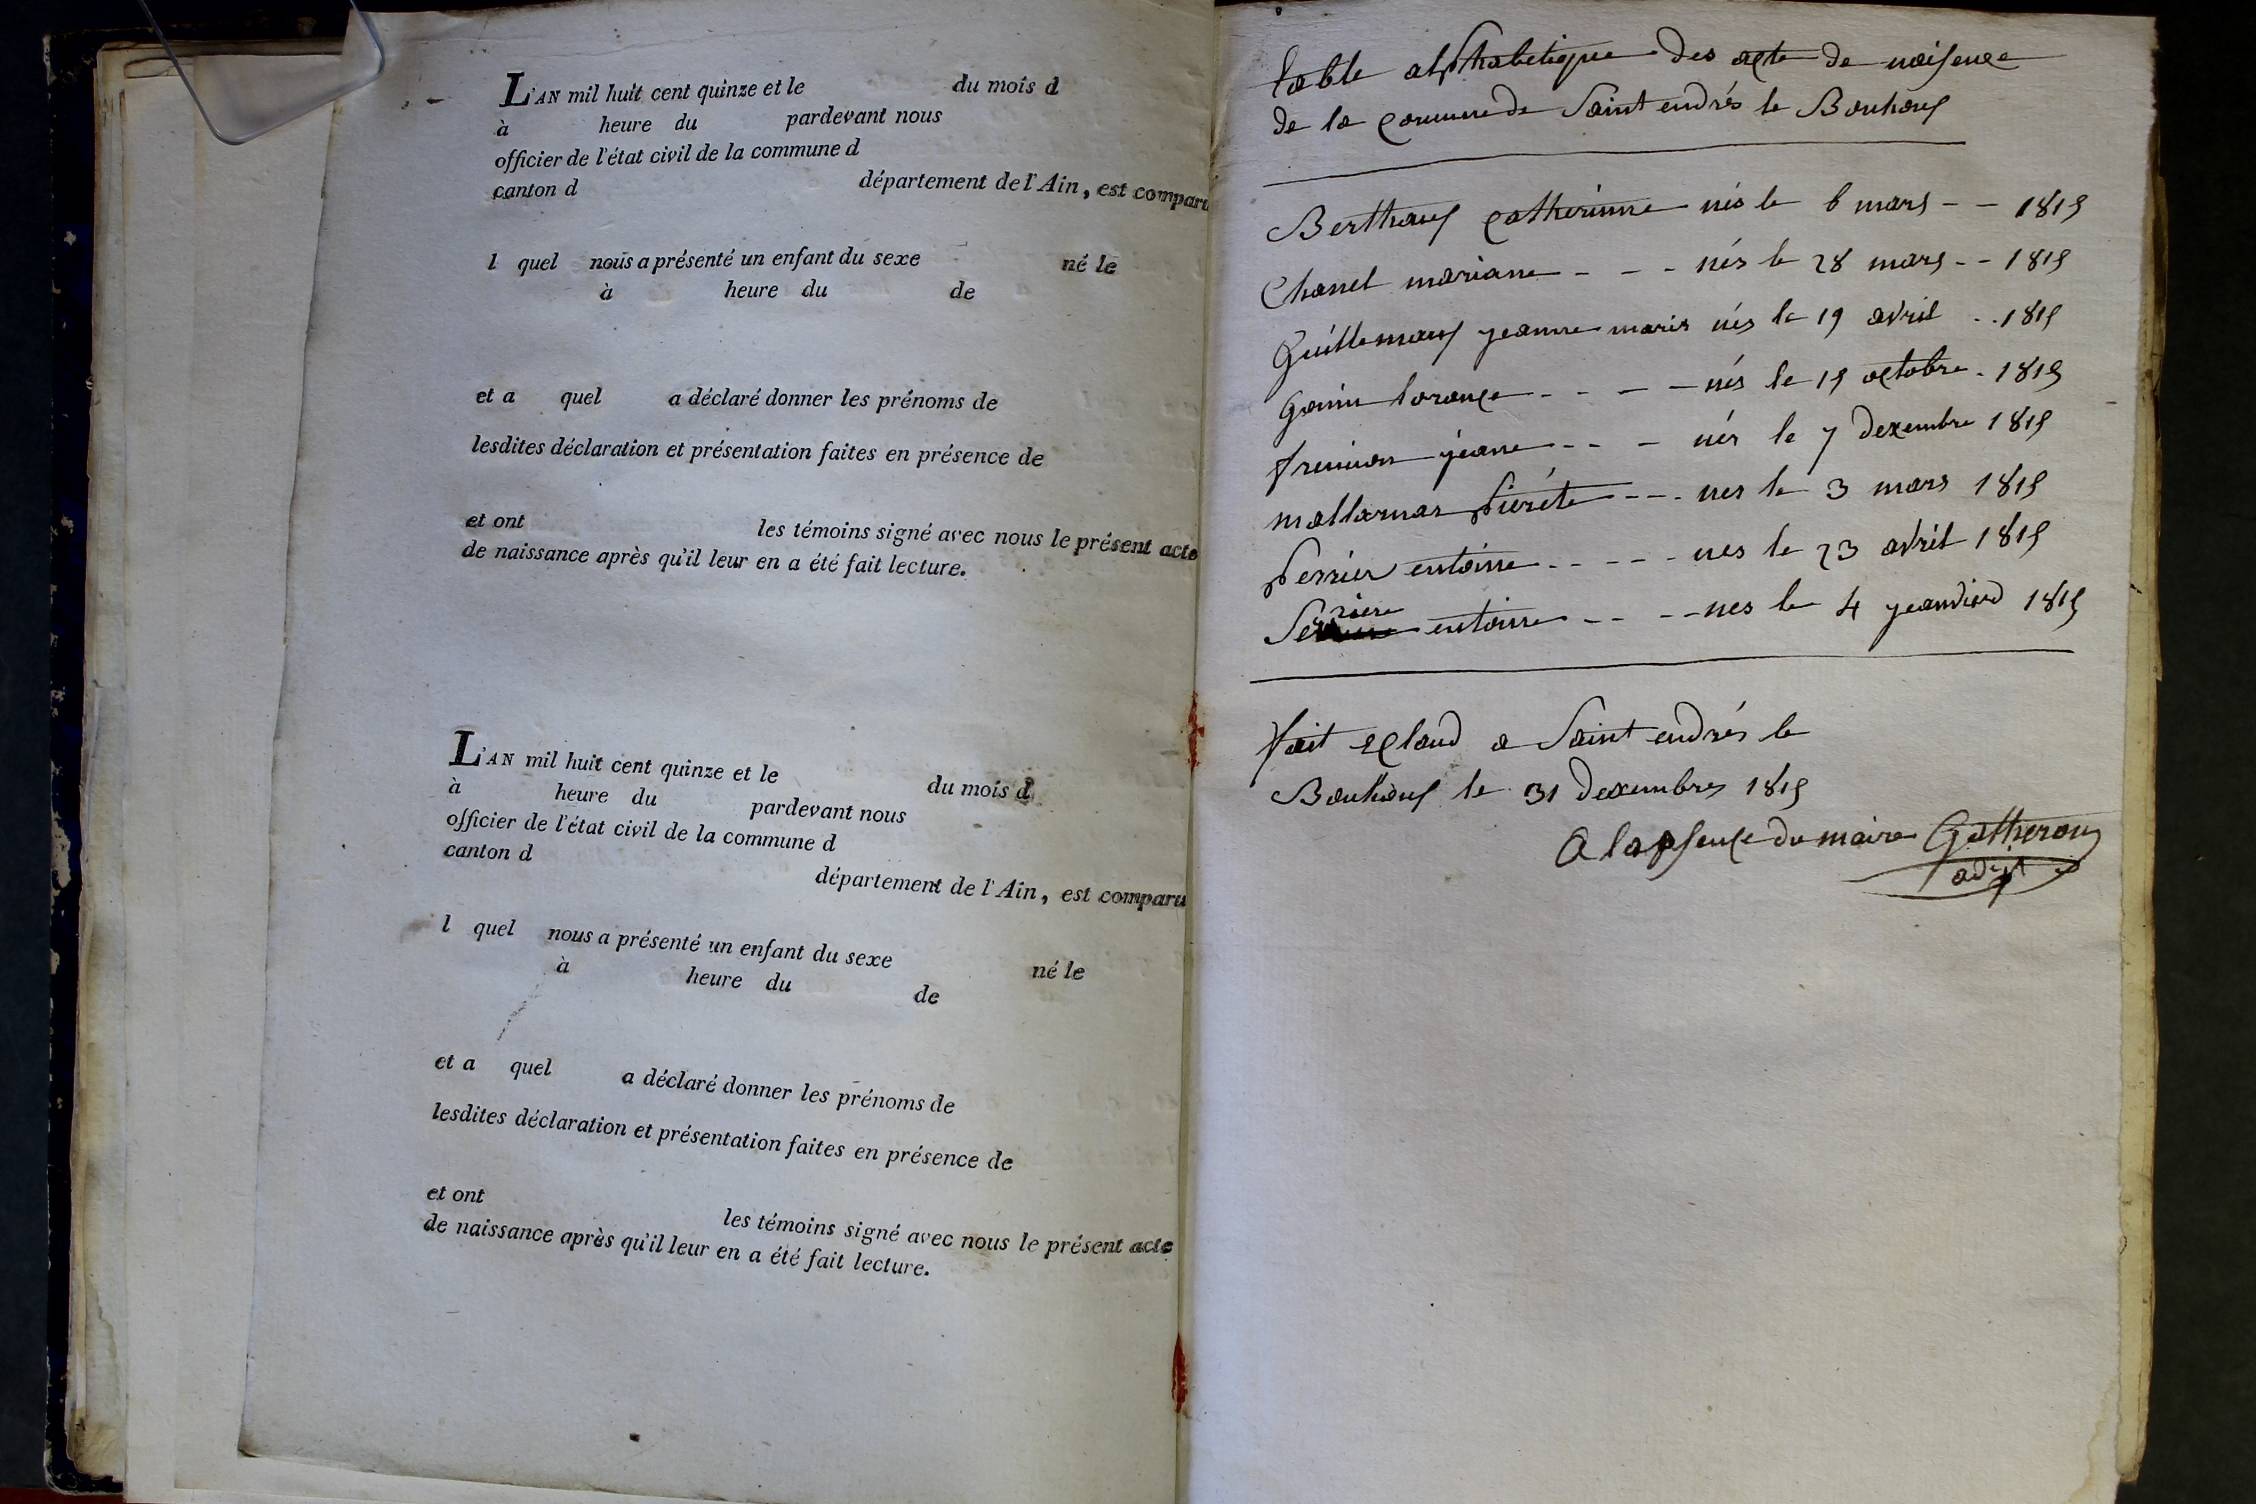 L'AN mil huit cent quinze et le du mois d
à heure du pardevant nous
officier de l'état civil de la commune d
canton d département de l'Ain, est comparu
l quel nous a présenté un enfant du sexe né le
à heure du de
et a quel a déclaré donner les prénoms de
lesdites déclaration et présentation faites en présence de
et ont les témoins signé avec nous le présent acte
de naissance après qu'il leur en a été fait lecture.
L'AN mil huit cent quinze et le du mois d
à heure du pardevant nous
officier de l'état civil de la commune d
canton d département de l'Ain, est comparu
l quel nous a présenté un enfant du sexe né le
à heure du de
et a quel a déclaré donner les prénoms de
lesdites déclaration et présentation faites en présence de
et ont les témoins signé avec nous le présent acte
de naissance après qu'il leur en a été fait lecture.
table alphabetique des acte de naisence
de la commune de Saint endrés le Bouhous
Berthous catherinne nés le 6 mars - - 1815
Chanel mariane - - - nés le 28 mars - - 1815
Guillemaus jeanne marie nés le 19 avril - - 1815
Gonin - - - - nés le 15 octobre - 1815
jeane - - - nés le 7 decembre 1815
mallarmas pieréte - - - nes le 3 mars 1815
perrier entoine - - - - - nes le 23 avril 1815
Serriere entoine - - - - nes le 4 jeanvierd 1815
fait e claud a Saint endrés le
Bouhous le 31 decembres 1815
A la psence du maire Gatheron
adjt